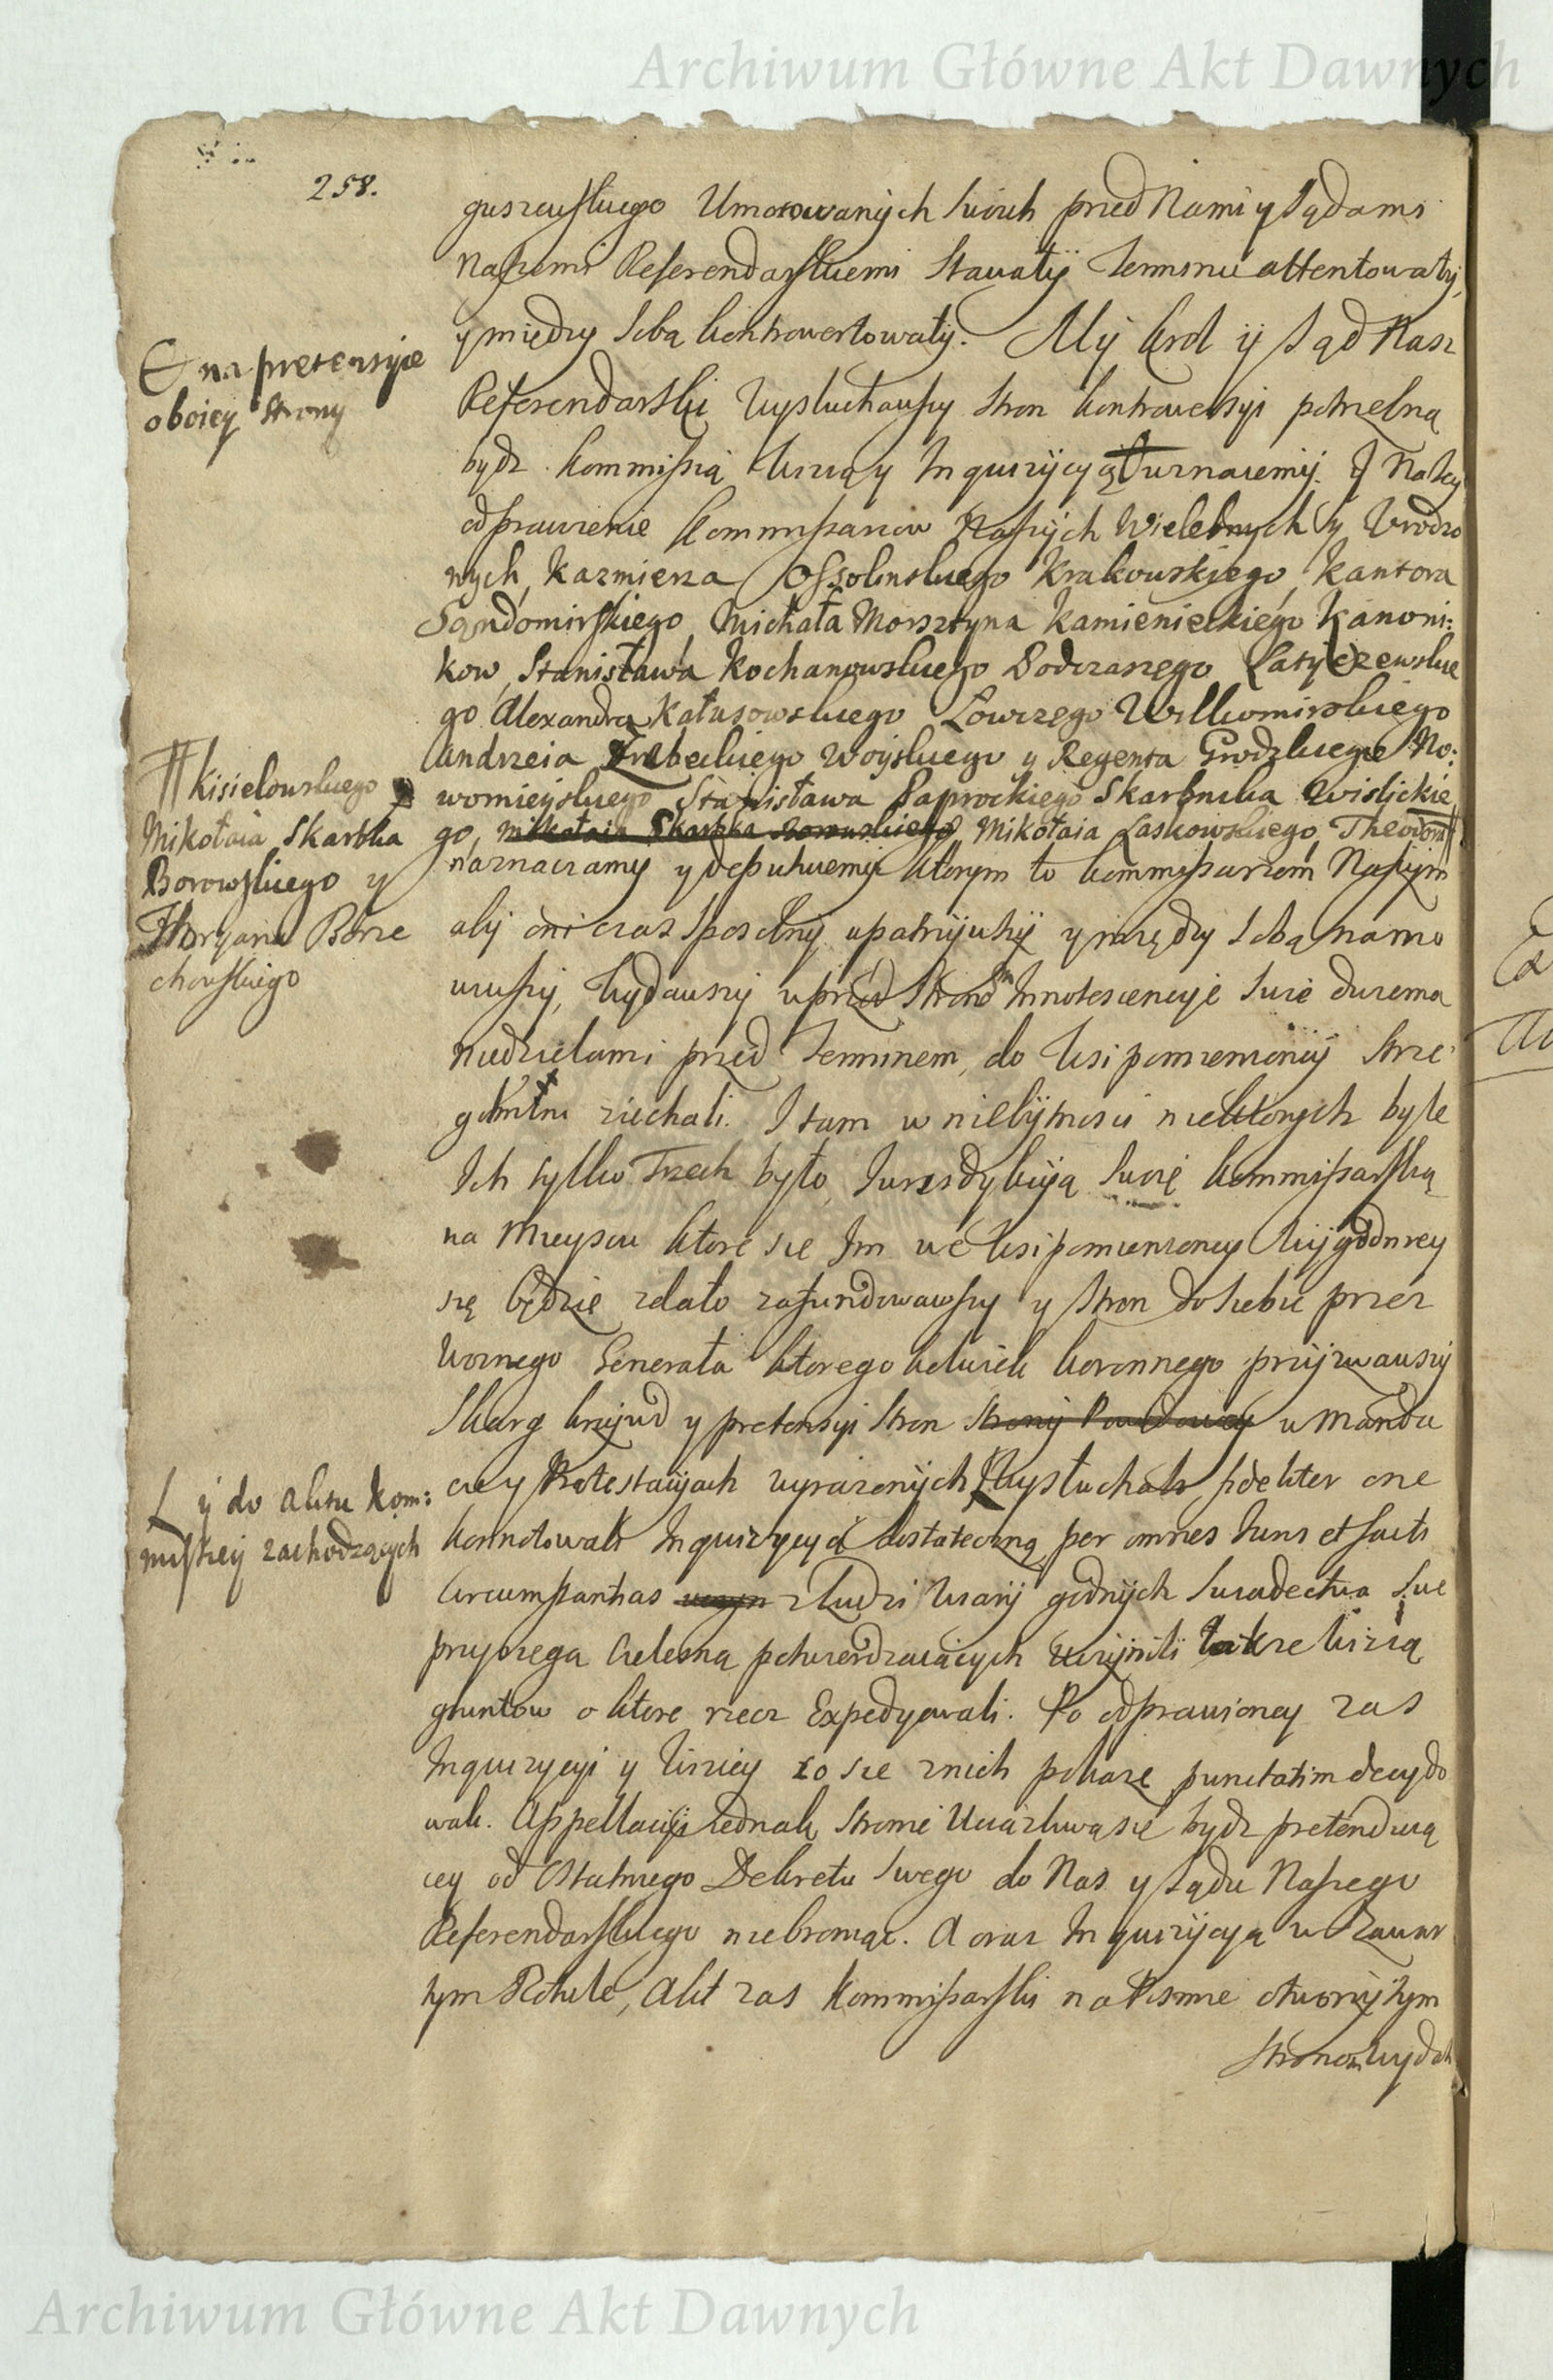 Archiwum Główne Akt Dawnych
258.
guszewskiego Umocowanych swoich przed Nami y Sądami
Naszemi Referendarskiemi Stawały Terminu attentowały,
y między Sobą kontrowertowały. My Krol y Sąd Nasz
Referendarski Wysłuchawszy stron kontrowersyi potrzebną
bydz kommissią Wizią y Inquizycyą uznaiemy. Na Tey
odprawienie Kommissarzow Naszych Wielebnych y Urodzo
nych, Kazmierza Ossolinskiego Krakowskiego, Kantora
Sandomirskiego, Michała Morsztyna Kamienieckiego Kanoni:
kow, Stanisława Kochanowskiego Podczaszego Latyczewskie
go Alexandra Katusowskiego Łowczego Wilkomirskiego
Andrzeia Trebeckiego Woyskiego y Regenta Grodzkiego No:
womieyskiego Stanisława Paprockiego Skarbnika Wislickie
go, Mikołaia Skarbka Borowskiego, Mikołaia Laskowskiego, Theodora
naznaczamy y deputuiemy ktorym to kommissarzom Naszym
aby oni czas sposobny upatrzywszy y między Sobą namo
wiwszy, Wydawszy wprzod Stronom Innotescencye swoie dwiema
niedzielami przed Terminem, do Wsi pomienioney Strze
gomina ziechali. I tam w niebytnosci niektorych byle
Ich tylko Trzech było, Jurisdykcyą Swoię kommissarską
na Mieyscu ktore się Im we Wsi pomienioney Wygodniey
się będzie zdało zafundowawszy y Stron do siebie przez
Woznego Generała ktorego kolwiek koronnego przyzwawszy
Skarg krzywd y pretensyi Stron Strony Powodowey w Manda
cie y Protestacyach wyrazonych Wysłuchali fideliter one
konnotowali Inquizycyą dostateczną per omnes Juris et facti
Circumstantias uczyn z Ludzi Wiary godnych Swiadectwa Swe
przysięgą Cielesną potwierdzaiących Uczynili także Wizią
gruntow o ktore rzecz Expedyowali. Po odprawioney zas
Inquizycyi y Wiziey co się znich pokaze punctatim decydo
wali. Appellacyi iednak Stronie Uciązliwą się bydz pretenduią
cey od Ostatniego Dekretu Swego do Nas y Sądu Naszego
Referendarskiego niebroniąc. A oraz Inquizycyą w Zawar
tym Rotule, Akt zas Kommissarski na Pismie otworzystym
Stronom Wydali
na pretensyie
oboiey Strony
Kisielowskiego
Mikołaia Skarbka
Borowskiego y
Floryana Borze
chowskiego
y do Aktu Kom:
missiey zachodzących
Archiwum Główne Akt Dawnych